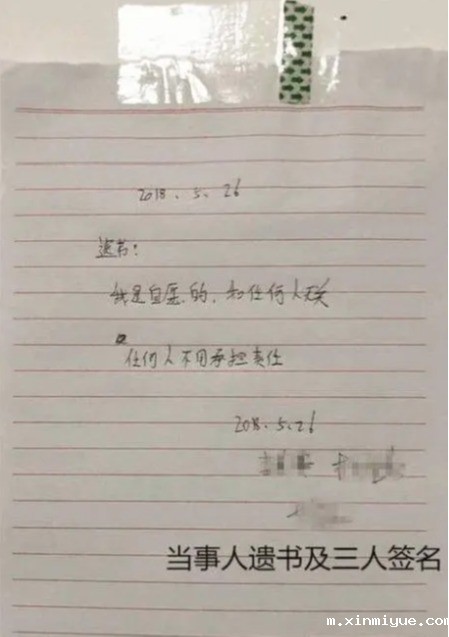 2018.5.26
遗书:
我是自愿的,和任何人无关
任何人不用承担责任
2018.5.26
当事人遗书及三人签名
m.xinmiyue.com